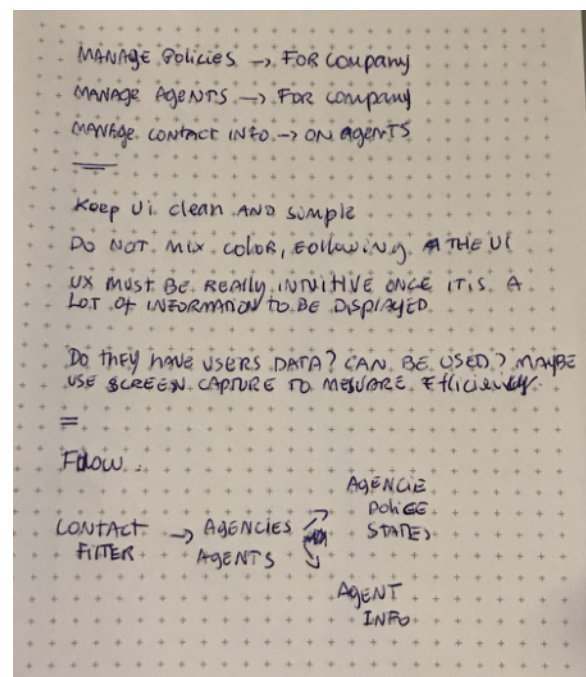 MANAGE POLICIES → FOR COMPANY
MANAGE AGENTS → FOR COMPANY
MANAGE CONTACT INFO → ON AGENTS
Keep Ui clean AND simple
DO NOT MIX COLOR, FOLLOWING THE UI
UX MUST BE REALLY INTUITIVE ONCE IT IS A
LOT OF INFORMATION TO BE DISPLAYED
DO THEY HAVE USERS DATA? CAN BE USED? MAYBE
USE SCREEN CAPTURE TO MESURARE Efficiency.
=
Flow:
CONTACT FILTER → AGENCIES AGENTS
AGENCIE POLICE STATES
AGENT INFO